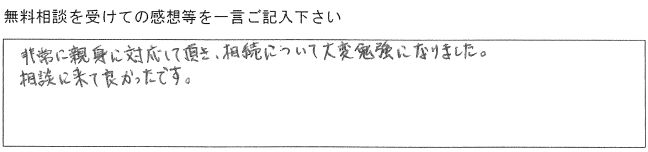 無料相談を受けての感想等を一言ご記入下さい
非常に親身に対応して頂き、相続について大変勉強になりました。
相談に来て良かったです。